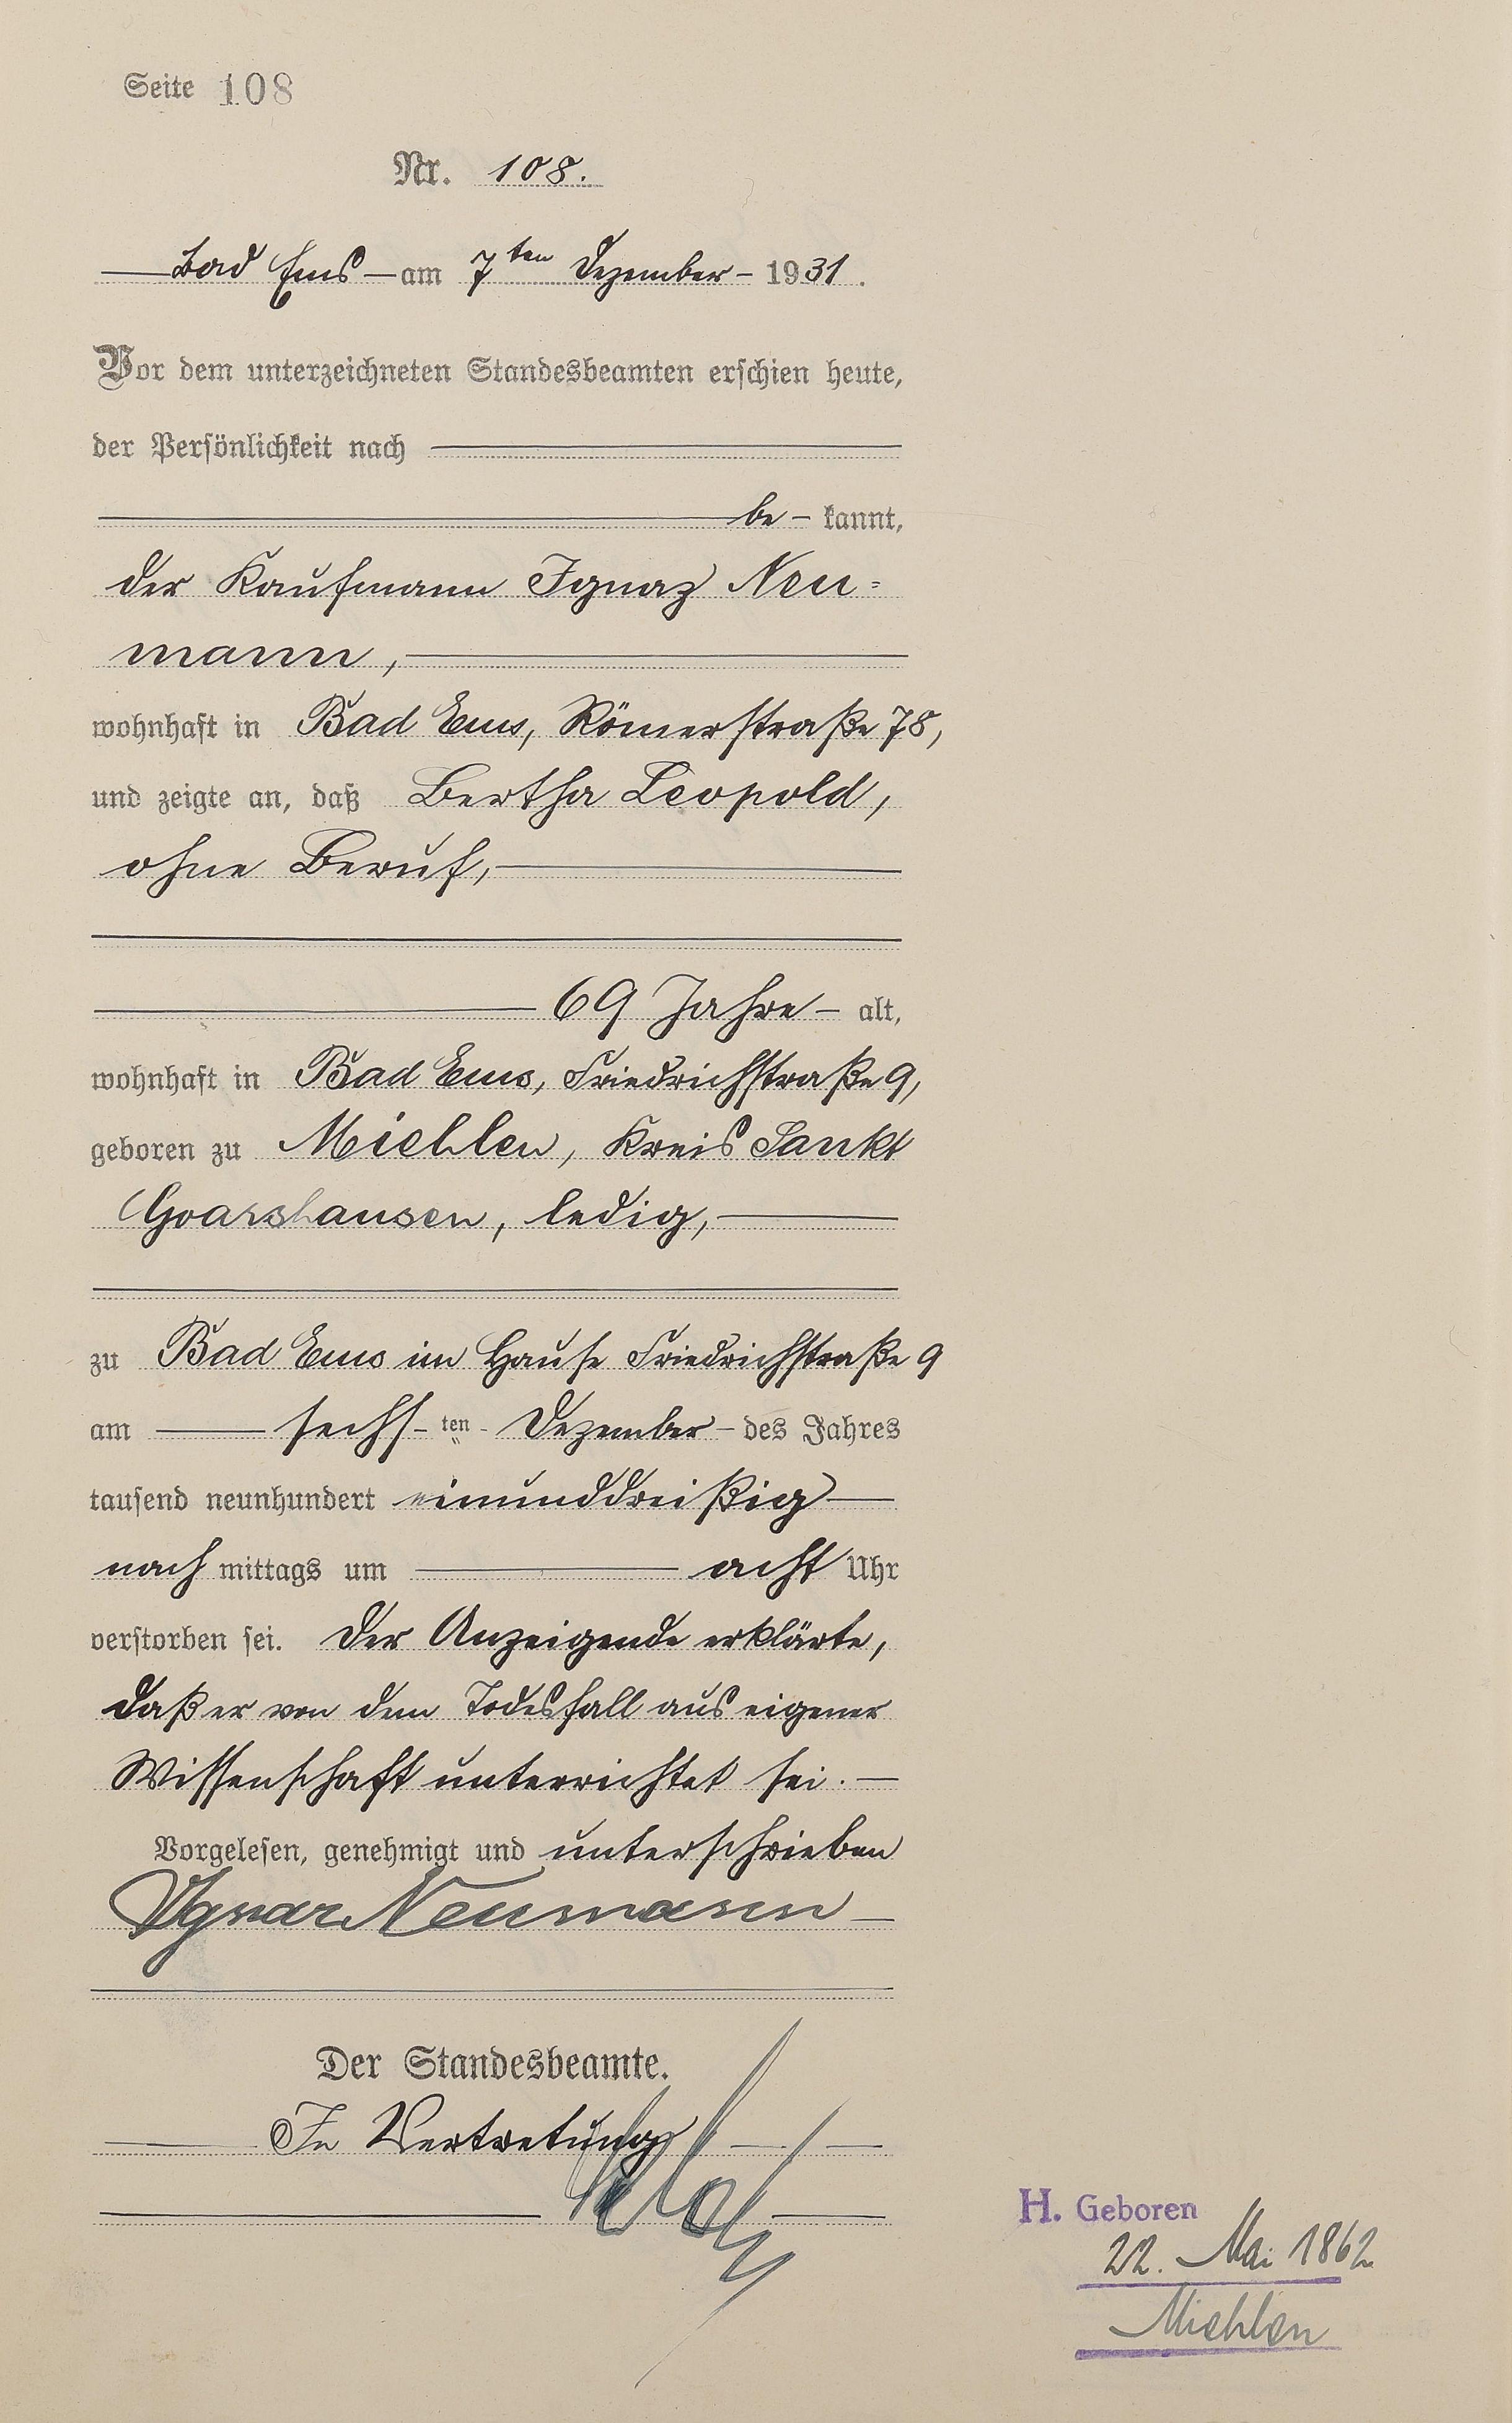 Seite 108
Nr. 108.
Bad Ems - am 7ten Dezember - 1931.
Vor dem unterzeichneten Standesbeamten erschien heute,
der Persönlichkeit nach
be - kannt,
der Kaufmann Ignaz Neu=
mann,
wohnhaft in Bad Ems, Römerstraße 78,
und zeigte an, daß Bertha Leopold,
ohne Beruf,
69 Jahre - alt,
wohnhaft in Bad Ems, Friedrichstraße 9,
geboren zu Miehlen, Kreis Sankt
Goarshausen, ledig,
zu Bad Ems im Hause Friedrichstraße 9
am sechs - ten - Dezember - des Jahres
tausend neunhundert einunddreißig
nach mittags um acht Uhr
verstorben sei. Der Anzeigende erklärte,
daß er von dem Todesfall aus eigener
Wissenschaft unterrichtet sei. -
Vorgelesen, genehmigt und unterschrieben
Ignaz Neumann
Der Standesbeamte.
In Vertretung
H. Geboren
22. Mai 1862
Miehlen